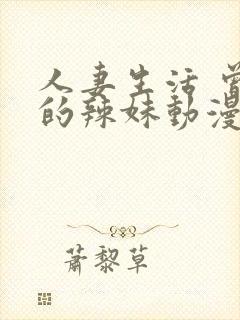 人妻生活 曾
的辣妹動漫
蕭黎草